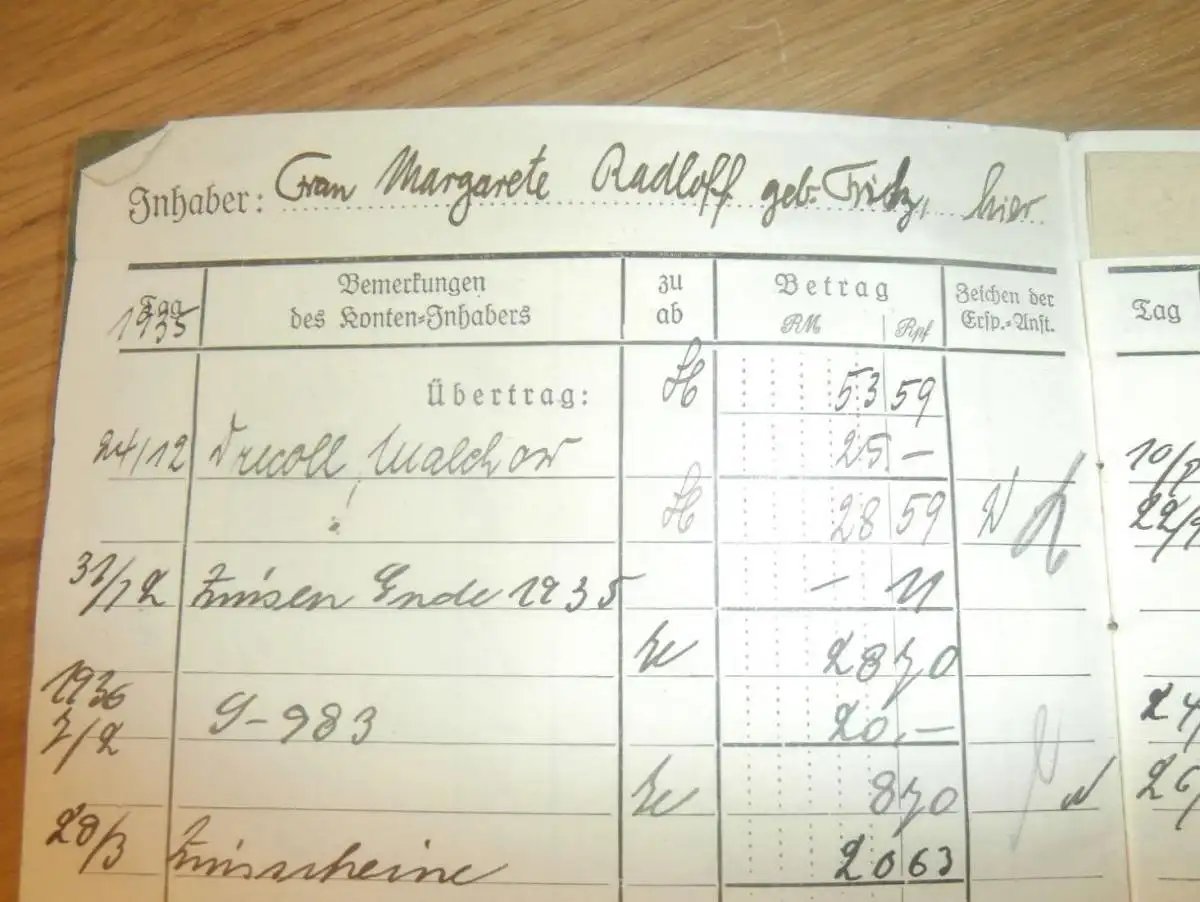 Inhaber: Frau Margarete Radloff geb. Fritz, hier
Tag Bemerkungen des Konten=Inhabers zu ab Betrag RM Rpf Zeichen der Ersp.=Anst. Tag
1935
Übertrag: H 53 59
24/12 Drecoll, Malchow 25.— 10/
H 28 59 22/
31/12 Zinsen Ende 1935 — 11
28 70
1936
7/2 G-983 20.— 24/
8 70 26/
28/3 Zinsscheine 20 63